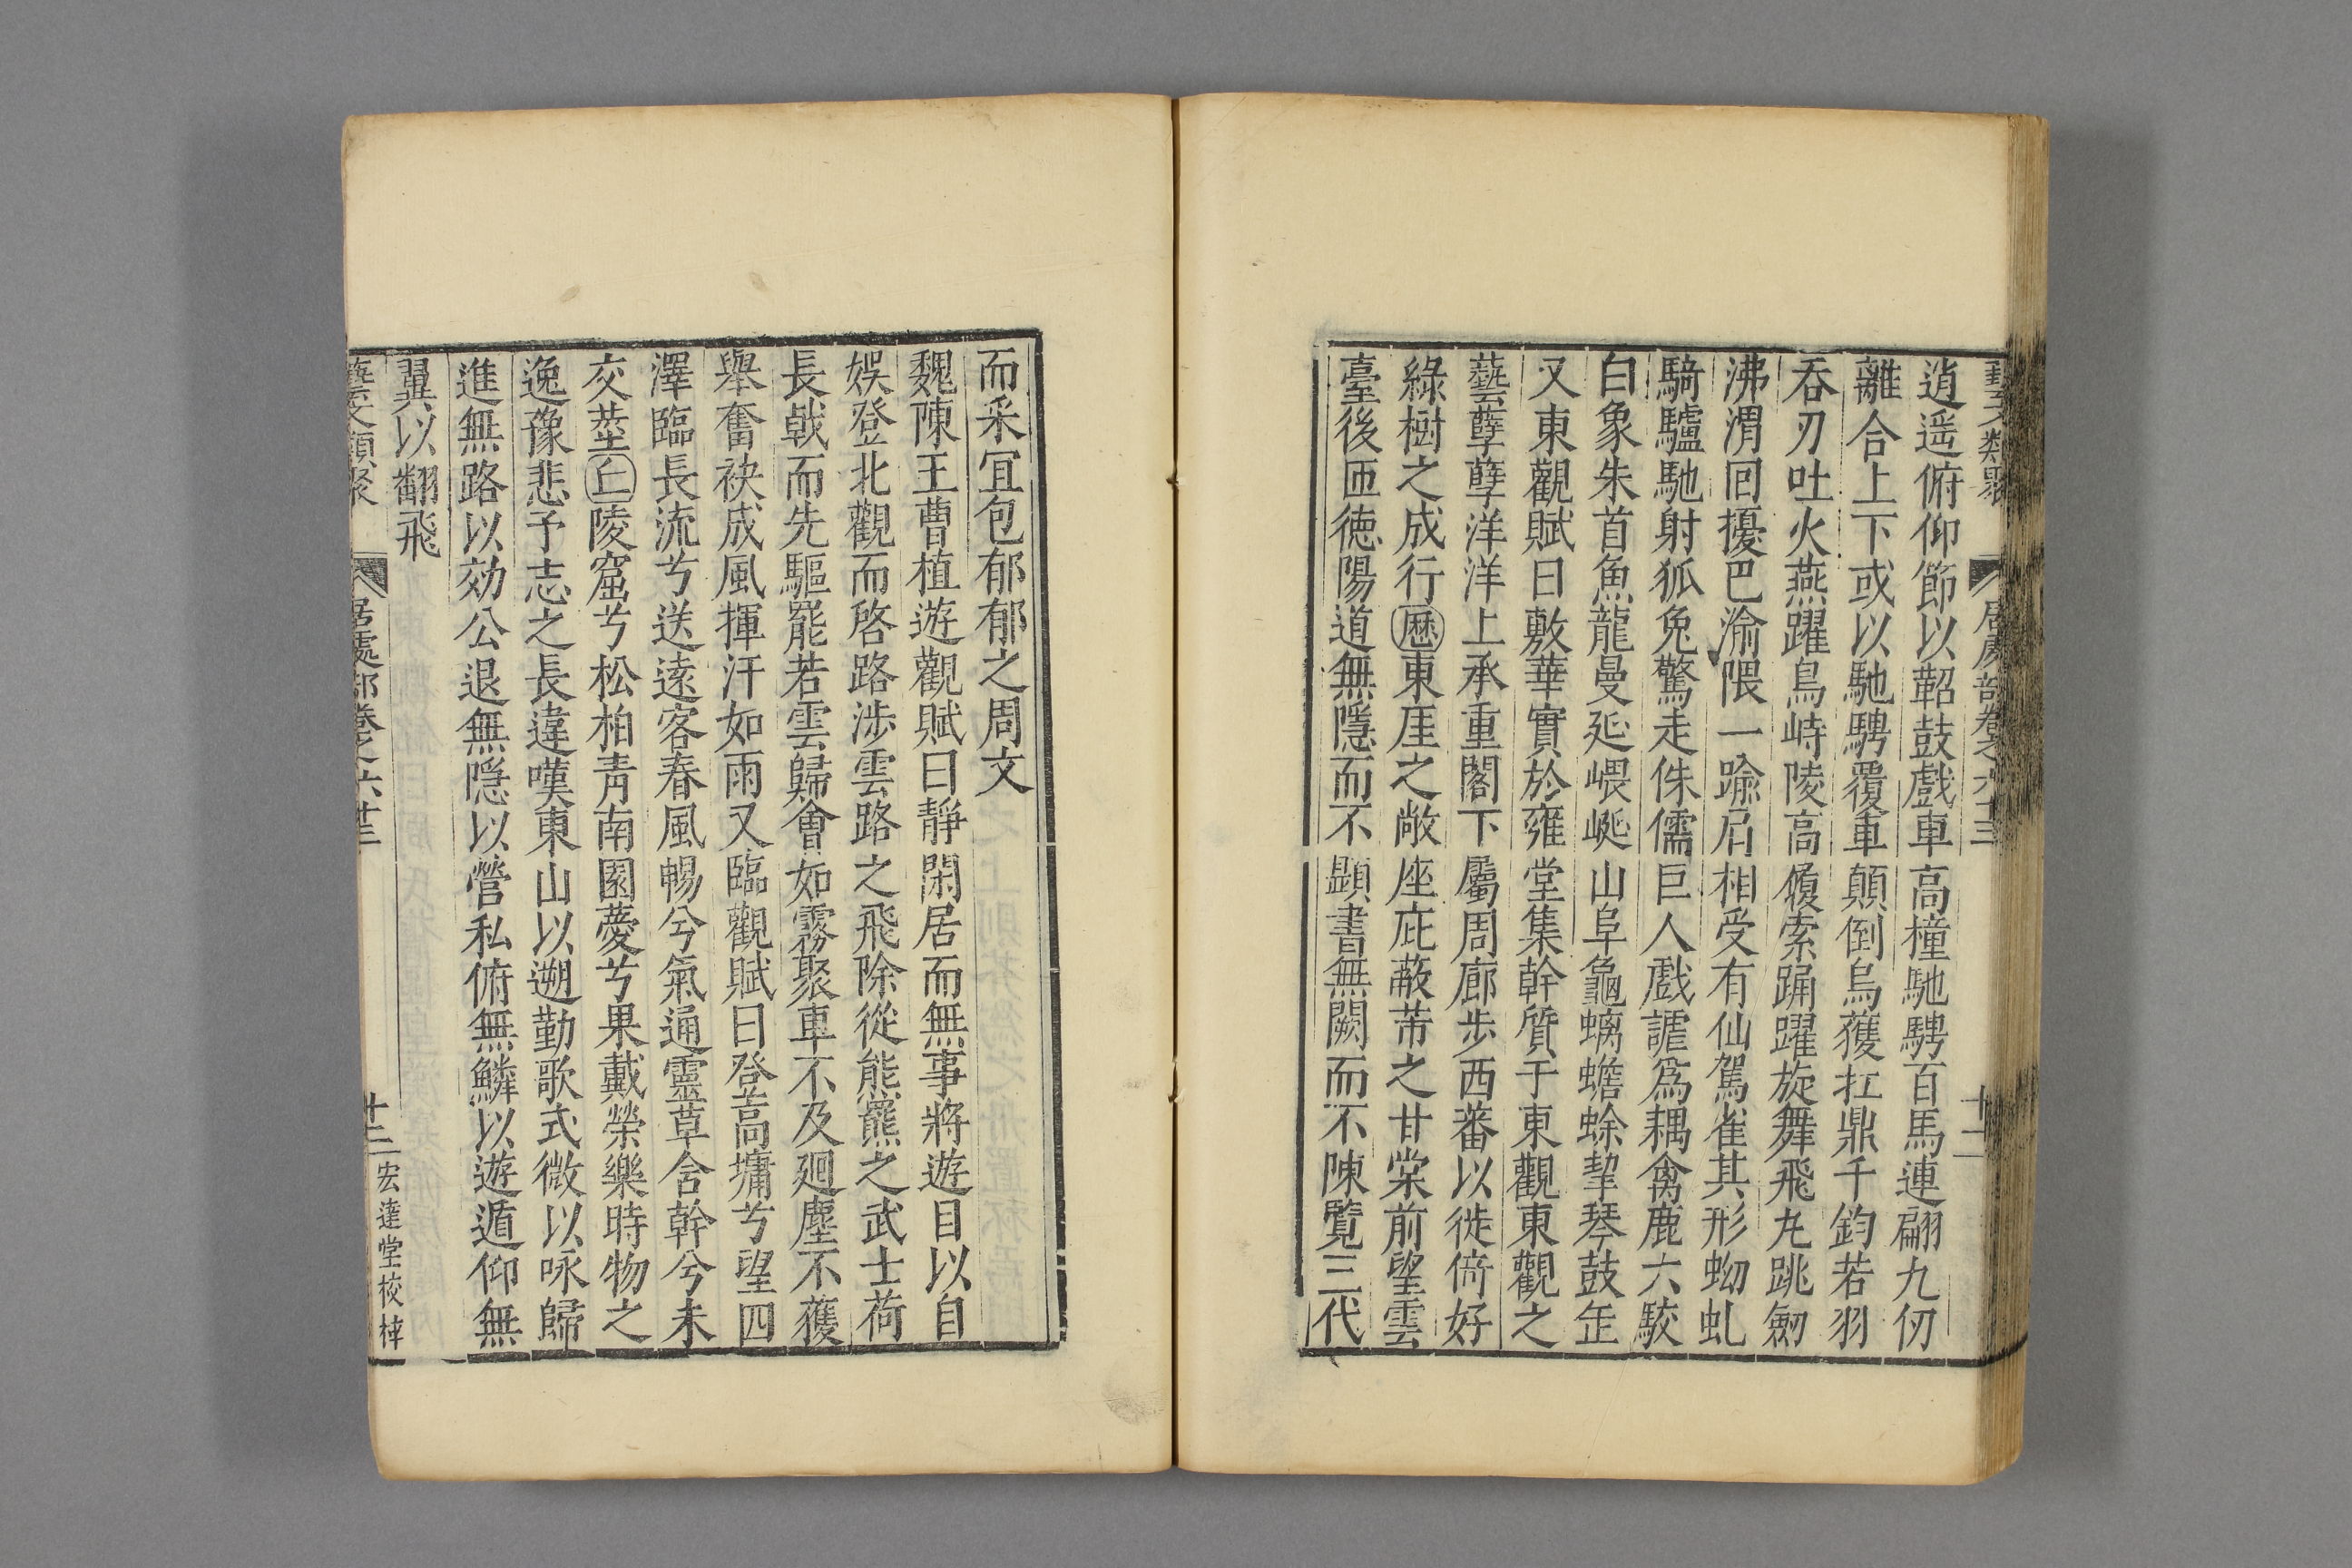 藝文類聚 居處部卷之六十三 十二
逍遥俯仰節以鞀鼓戲車高橦馳騁百馬連翩九仞
離合上下或以馳騁覆車顛倒烏獲扛鼎千鈞若羽
吞刃吐火燕躍鳥峙陵高履索踊躍旋舞飛丸跳劒
沸渭回擾巴渝隈一踰肩相受有仙駕雀其形蚴虬
騎驢馳射狐兔驚走侏儒巨人戲謔爲耦禽鹿六駮
白象朱首魚龍曼延㟪崅山阜龜螭蟾蜍挈琴鼓缶
又東觀賦曰敷華實於雍堂集幹質于東觀東觀之
藝孽孽洋洋上承重閣下屬周廊步西蕃以徙倚好
綠樹之成行歷東厓之敞座庇蔽芾之甘棠前望雲
臺後匝徳陽道無隱而不顯書無闕而不陳覽三代
而采冝包郁郁之周文
魏陳王曹植遊觀賦曰靜閑居而無事將遊目以自
娱登北觀而啓路涉雲路之飛除從熊羆之武士荷
長戟而先驅罷若雲歸會如霧聚車不及廻塵不獲
舉奮袂成風揮汗如雨又臨觀賦曰登高墉兮望四
澤臨長流兮送遠客春風暢兮氣通靈草含幹兮木
交莖丘陵窟兮松柏青南園薆兮果戴榮樂時物之
逸豫悲予志之長違嘆東山以遡勤歌式微以咏歸
進無路以効公退無隱以營私俯無鱗以遊遁仰無
翼以翻飛
藝文類聚 居處部卷之六十三 十二 宏達堂校梓